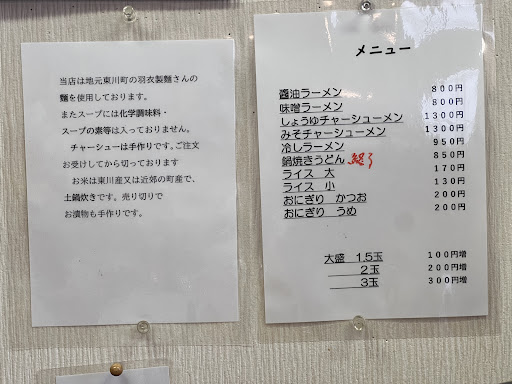 当店は地元東川町の羽衣製麵さんの
麵を使用しております。
またスープには化学調味料・
スープの素等は入っておりません。
チャーシューは手作りです。ご注文
お受けしてから切っております
お米は東川産又は近郊の町産で、
土鍋炊きです。売り切りで
お漬物も手作りです。
メニュー
醬油ラーメン 800円
味噌ラーメン 800円
しょうゆチャーシューメン 1300円
みそチャーシューメン 1300円
冷しラーメン 950円
鍋焼きうどん 終り 850円
ライス 大 170円
ライス 小 130円
おにぎり かつお 200円
おにぎり うめ 200円
大盛 1.5玉 100円増
2玉 200円増
3玉 300円増